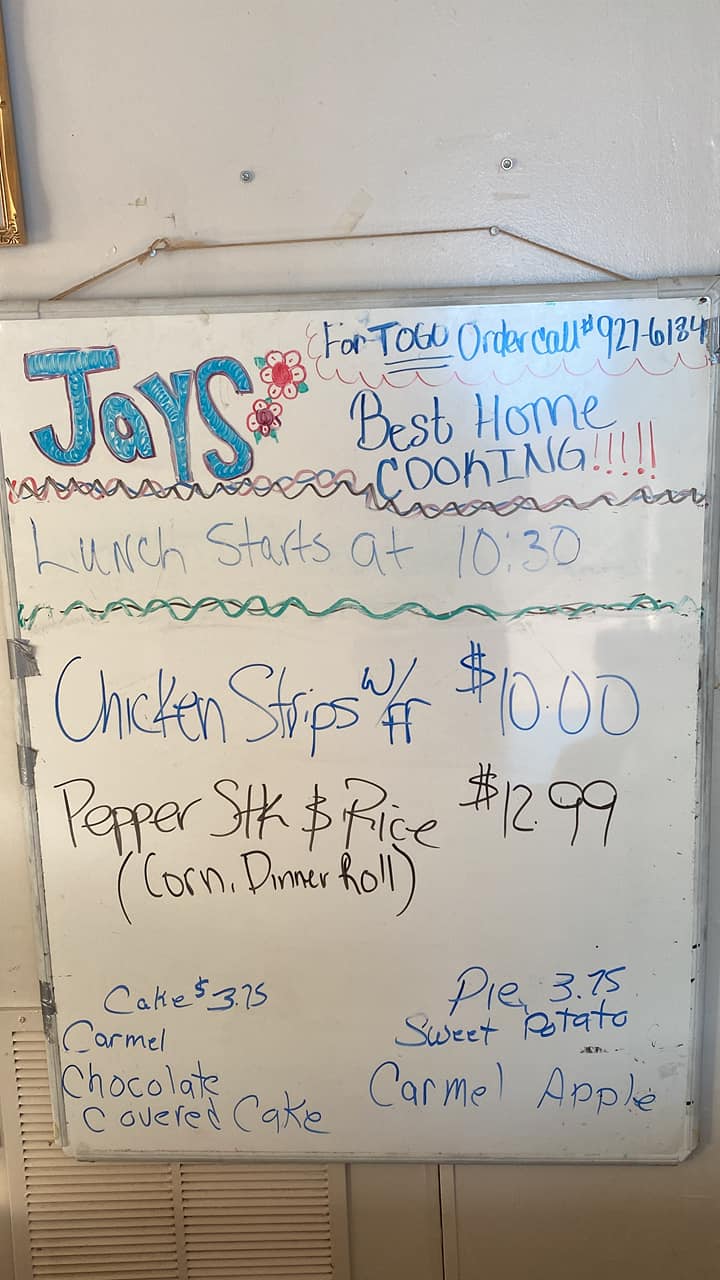 JaYS
For TOGO Order call # 927-6184
Best Home
COOKING!!!!!
Lunch Starts at 10:30
Chicken Strips w/ ff $10.00
Pepper Stk & Rice $12.99
(Corn, Dinner Roll)
Cake $3.75
Carmel
Chocolate
Covered Cake
Pie 3.75
Sweet Potato
Carmel Apple